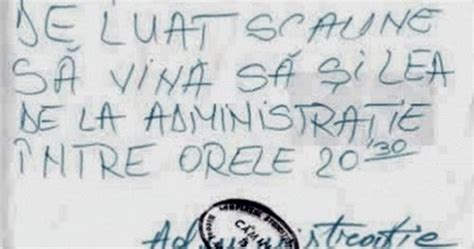 DE LUAT SCAUNE
SĂ VINĂ SĂ ȘI LEA
DE LA ADMINISTRAȚIE
ÎNTRE ORELE 20³⁰
Administrație